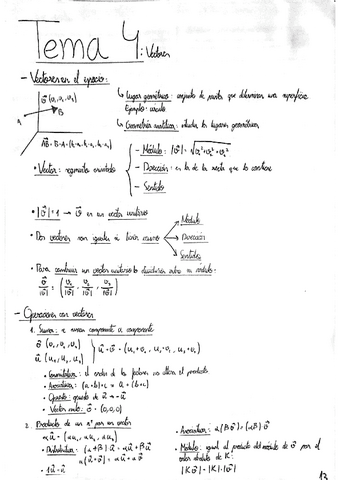 Tema 4: Vectores
- Vectores en el espacio:
v⃗ (v₁, v₂, v₃)
A
B
AB⃗ = B - A = (b₁-a₁, b₂-a₂, b₃-a₃)
↳ Lugar geométrico: conjunto de puntos que determinan una superficie
Ejemplo: círculo
↳ Geometría analítica: estudia los lugares geométricos
• Vector: segmento orientado
- Módulo: |v⃗| = √(v₁² + v₂² + v₃²)
- Dirección: es la de la recta que lo contiene
- Sentido
• |v⃗| = 1 → v⃗ es un vector unitario
• Dos vectores son iguales si tienen mismo
Módulo
Dirección
Sentido
• Para construir un vector unitario lo dividimos entre su módulo:
v⃗/|v⃗| = (v₁/|v⃗|, v₂/|v⃗|, v₃/|v⃗|)
- Operaciones con vectores
1. Suma: se suman componente a componente
v⃗ (v₁, v₂, v₃)
u⃗ (u₁, u₂, u₃)
u⃗ + v⃗ = (u₁+v₁, u₂+v₂, u₃+v₃)
• Conmutativa: el orden de los factores no altera el producto
• Asociativa: (a+b)+c = a+(b+c)
• Opuesto: opuesto de u⃗ = -u⃗
• Vector nulo: o⃗ = (0,0,0)
2. Producto de un nº por un vector
αu⃗ = (αu₁, αu₂, αu₃)
• Distributiva: (α+β)u⃗ = αu⃗ + βu⃗
α(u⃗+v⃗) = αu⃗ + αv⃗
• 1u⃗ = u⃗
• Asociativa: α(βv⃗) = (αβ)v⃗
• Módulo: igual al producto del módulo de v⃗ por el
valor absoluto de K:
|Kv⃗| = |K|·|v⃗|
13